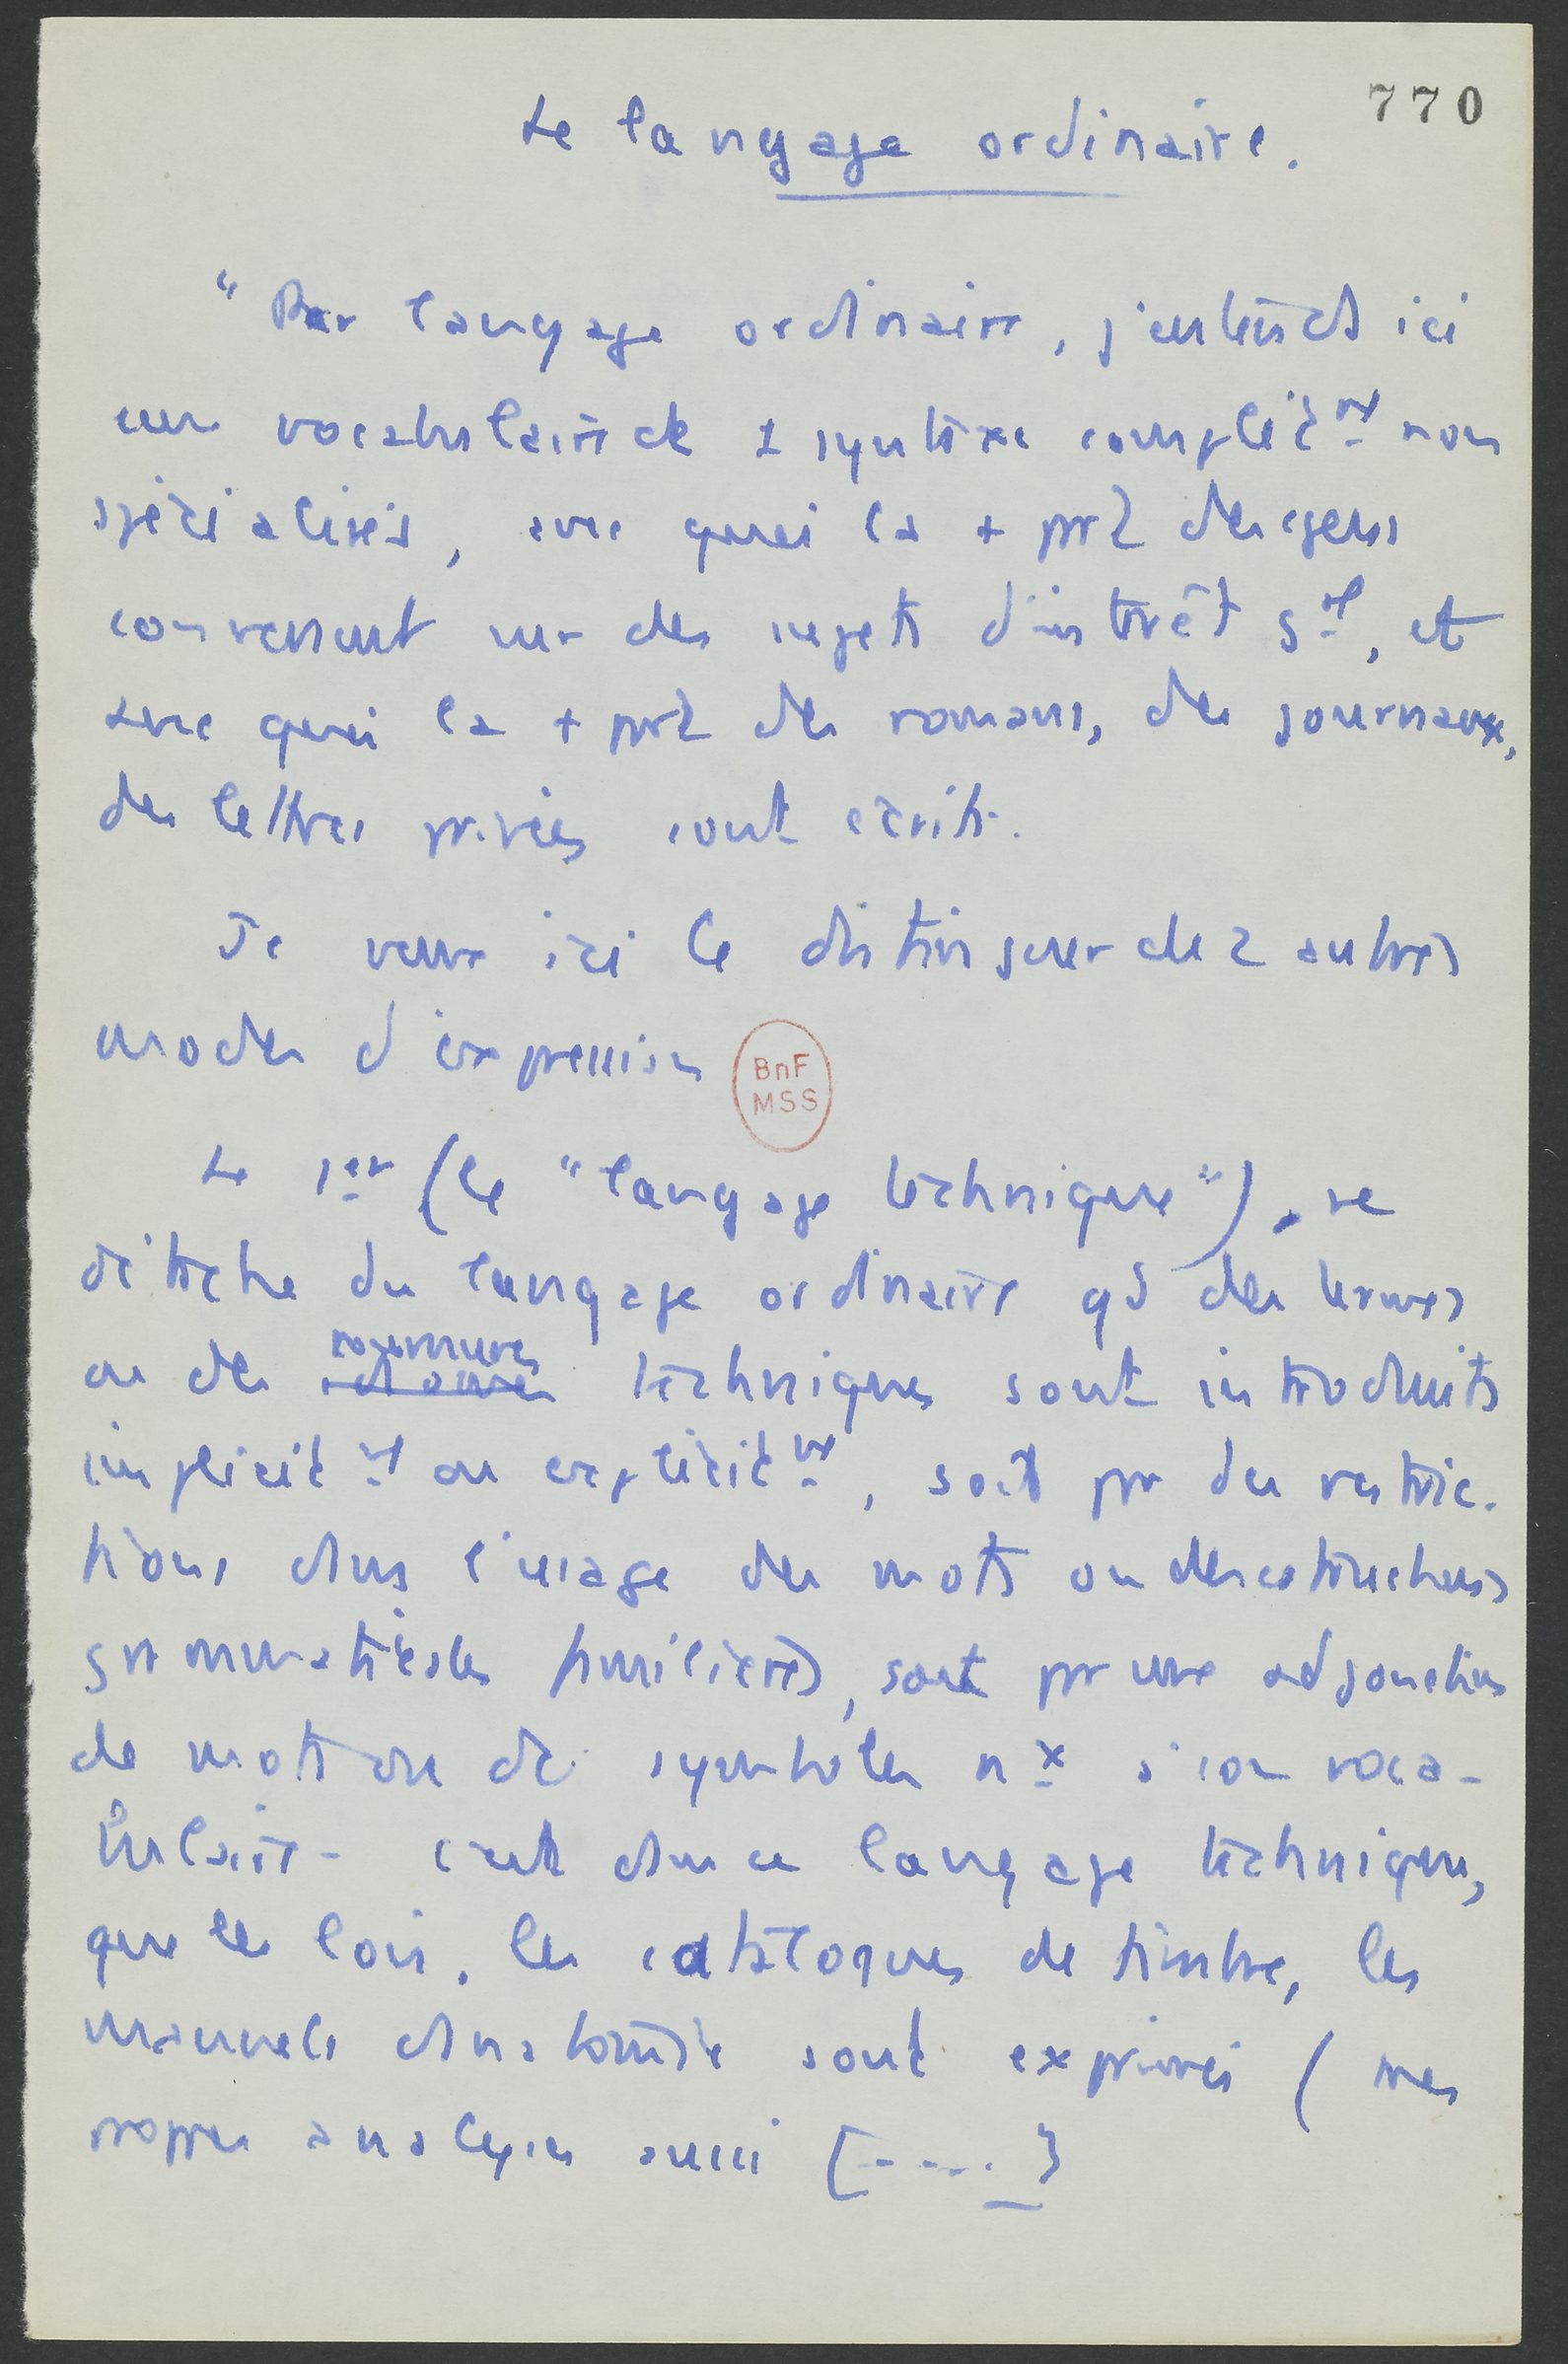 770
Le langage ordinaire.
" Par langage ordinaire, j'entends ici
un vocabulaire et 1 syntaxe complèt^mt non
spécialisés, avec quoi la + prt des gens
conversent sur des sujets d'intérêt g^al, et
avec quoi la + prt des romans, des journaux,
des lettres privées sont écrits.
Je veux ici le distinguer de 2 autres
modes d'expression
BnF
MSS
Le 1er (le "langage technique"), se
détache du langage ordinaire qd des termes
ou des tournures techniques sont introduits
implicit^mt ou explicit^mt, soit par des restric-
tions dans l'usage des mots ou des structures
grammaticales familières, soit par une adjonction
de mots ou de symboles nx à son voca-
bulaire - c'est dans ce langage technique,
que les lois, les catalogues de timbre, les
manuels d'anatomie sont exprimés ( mes
propres analyses aussi [-----]